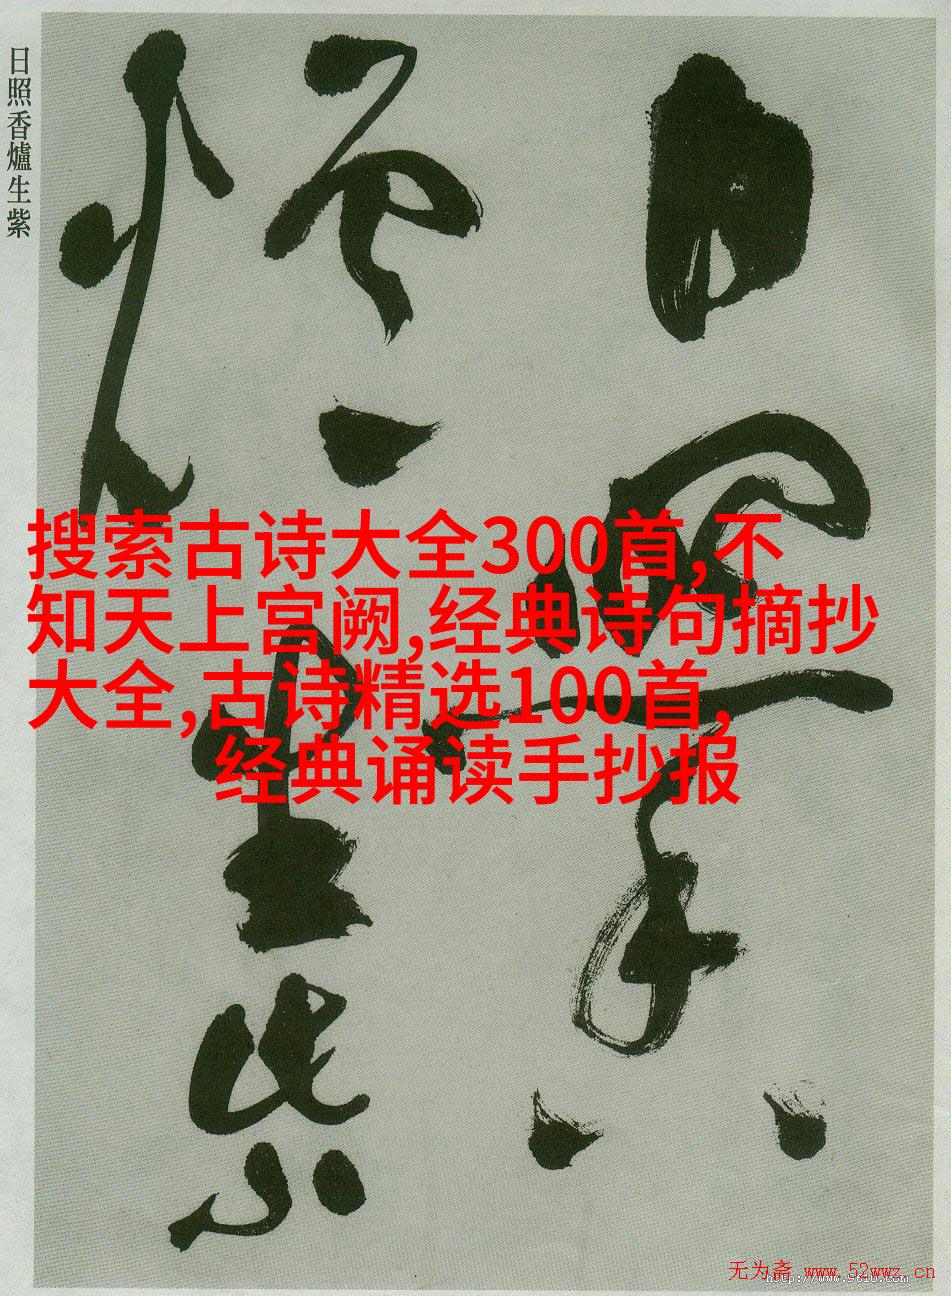 日照香爐生紫
日照香
爐生紫
搜索古诗大全300首,不
知天上宫阙,经典诗句摘抄
大全,古诗精选100首,
经典诵读手抄报
无为斋 www.52wwz.cn
http://www.9610.com